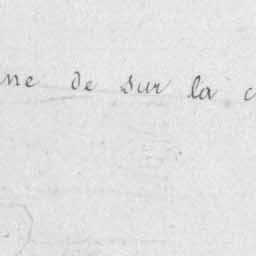 ne de sur la